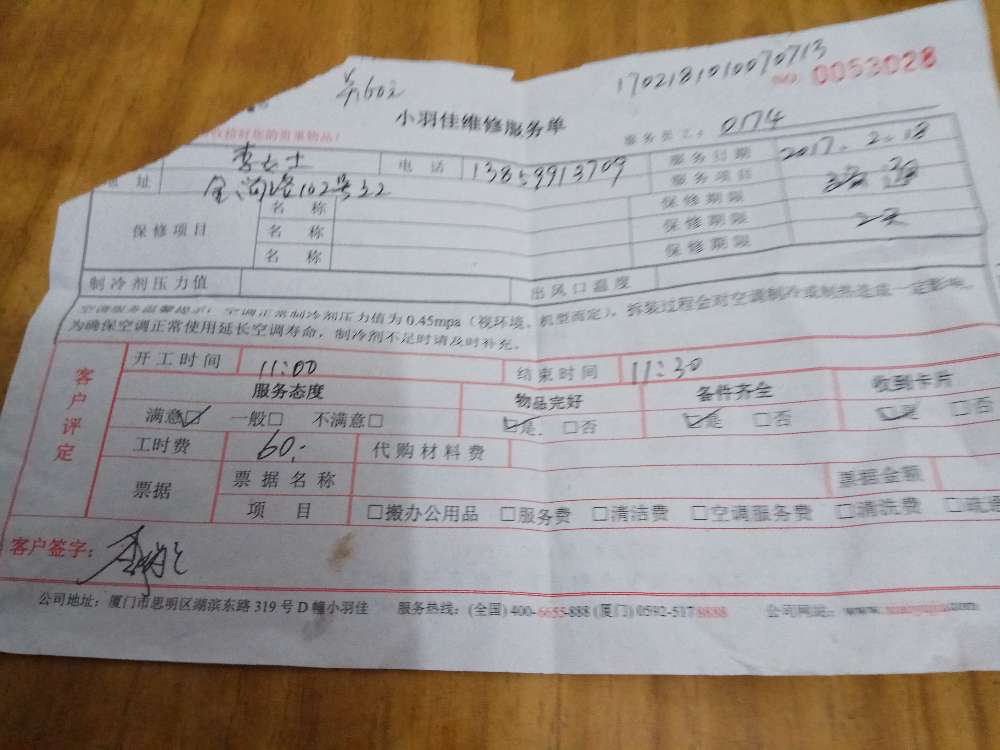 1702181010070713
NO. 0053028
小羽佳维修服务单
服务员工: 0174
收拾好您的贵重物品!
李女士 电话 13859913709 服务日期 2017.2.18
地址 102号 服务项目
保修项目 名称 保修期限
名称 保修期限
名称 保修期限
制冷剂压力值 出风口温度
空调服务温馨提示:空调正常制冷剂压力值为0.45mpa(视环境、机型而定),拆装过程会对空调制冷或制热造成一定影响,
为确保空调正常使用延长空调寿命,制冷剂不足时请及时补充。
客户评定
开工时间 11:00 结束时间 11:30
服务态度 物品完好 备件齐全 收到卡片
满意☑ 一般□ 不满意□ ☑是. □否 ☑是 □否 ☑是 □否
工时费 60.- 代购材料费
票据 票据名称 票据金额
项目 □搬办公用品 □服务费 □清洁费 □空调服务费 □清洗费 □疏通
客户签字:
公司地址:厦门市思明区湖滨东路319号D幢小羽佳 服务热线:(全国)400-6655-888 (厦门)0592-5178888 公司网址:www.xiaoyujia.com